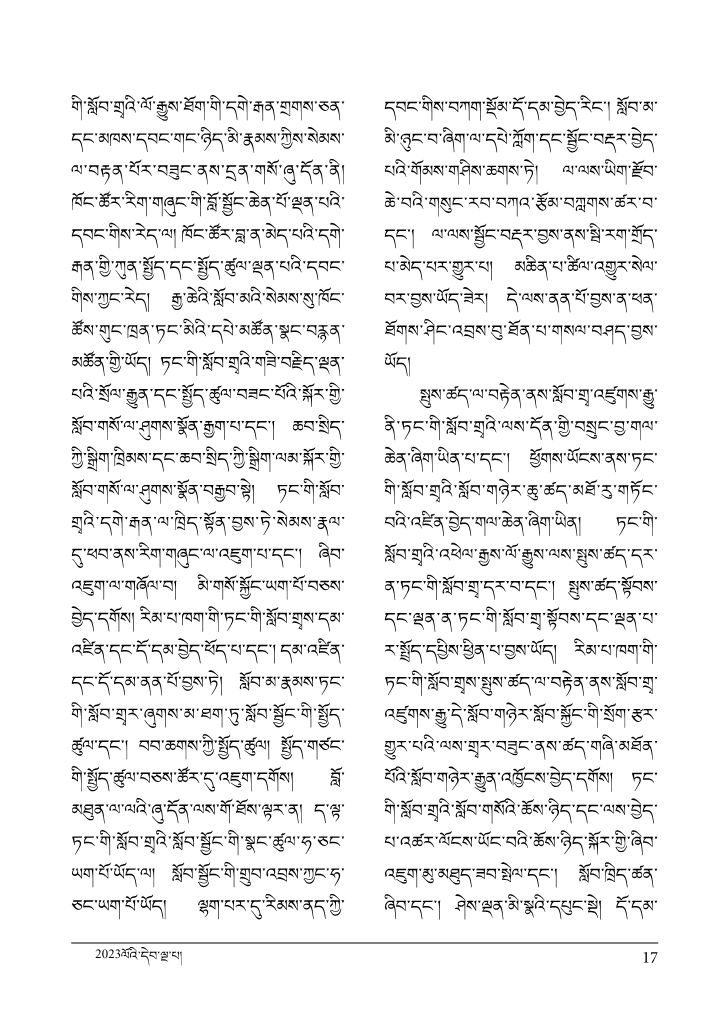 གི་སློབ་གྲྭའི་ལོ་རྒྱུས་ཐོག་གི་དགེ་རྒན་གྲགས་ཅན་
དང་མཁས་དབང་གང་ཉིད་མི་རྣམས་ཀྱིས་སེམས་
ལ་བརྟན་པོར་བཟུང་ནས་དྲན་གསོ་ཞུ་དོན་ནི།
ཁོང་ཚོར་རིག་གཞུང་གི་བློ་སྦྱོང་ཆེན་པོ་ལྡན་པའི་
དབང་གིས་རེད་ལ། ཁོང་ཚོར་བླ་ན་མེད་པའི་དགེ་
རྒན་གྱི་ཀུན་སྤྱོད་དང་སྤྱོད་ཚུལ་ལྡན་པའི་དབང་
གིས་ཀྱང་རེད། རྒྱ་ཆེའི་སློབ་མའི་སེམས་སུ་ཁོང་
ཚོས་གུང་ཁྲན་ཏང་མིའི་དཔེ་མཚོན་སྣང་བརྙན་
མཚོན་གྱི་ཡོད། ཏང་གི་སློབ་གྲྭའི་གཟི་བརྗིད་ལྡན་
པའི་སྲོལ་རྒྱུན་དང་སྤྱོད་ཚུལ་བཟང་པོའི་སྐོར་གྱི་
སློབ་གསོ་ལ་ཤུགས་སྣོན་རྒྱག་པ་དང༌། ཆབ་སྲིད་
ཀྱི་སྒྲིག་ཁྲིམས་དང་ཆབ་སྲིད་ཀྱི་སྒྲིག་ལམ་སྐོར་གྱི་
སློབ་གསོ་ལ་ཤུགས་སྣོན་བརྒྱབ་སྟེ། ཏང་གི་སློབ་
གྲྭའི་དགེ་རྒན་ལ་ཁྲིད་སྟོན་བྱས་ཏེ་སེམས་རྣལ་
དུ་ཕབ་ནས་རིག་གཞུང་ལ་འཇུག་པ་དང༌། ཞིབ་
འཇུག་ལ་གཞོལ་བ། མི་གསོ་སྐྱོང་ཡག་པོ་བཅས་
བྱེད་དགོས། རིམ་པ་ཁག་གི་ཏང་གི་སློབ་གྲྭས་དམ་
འཛིན་དང་དོ་དམ་བྱེད་ཕོད་པ་དང༌། དམ་འཛིན་
དང་དོ་དམ་ནན་པོ་བྱས་ཏེ། སློབ་མ་རྣམས་ཏང་
གི་སློབ་གྲྭར་ཞུགས་མ་ཐག་ཏུ་སློབ་སྦྱོང་གི་སྤྱོད་
ཚུལ་དང༌། བབ་ཆགས་ཀྱི་སྤྱོད་ཚུལ། སྤྱོད་གཙང་
གི་སྤྱོད་ཚུལ་བཅས་ཚོར་དུ་འཇུག་དགོས། བློ་
མཐུན་ལ་ལའི་ཞུ་དོན་ལས་གོ་ཐོས་ལྟར་ན། ད་ལྟ་
ཏང་གི་སློབ་གྲྭའི་སློབ་སྦྱོང་གི་སྣང་ཚུལ་ཧ་ཅང་
ཡག་པོ་ཡོད་ལ། སློབ་སྦྱོང་གི་གྲུབ་འབྲས་ཀྱང་ཧ་
ཅང་ཡག་པོ་ཡོད། ལྷག་པར་དུ་རིམས་ནད་ཀྱི་
དབང་གིས་བཀག་སྡོམ་དོ་དམ་བྱེད་རིང༌། སློབ་མ་
མི་ཉུང་བ་ཞིག་ལ་དཔེ་ཀློག་དང་སྦྱོང་བརྡར་བྱེད་
པའི་གོམས་གཤིས་ཆགས་ཏེ། ལ་ལས་ཡིག་རྫོབ་
ཆེ་བའི་གསུང་རབ་བཀའ་རྩོམ་བཀླགས་ཚར་བ་
དང༌། ལ་ལས་སྦྱོང་བརྡར་བྱས་ནས་སྦི་རག་གྲོད་
པ་མེད་པར་གྱུར་པ། མཆིན་པ་ཚིལ་འགྱུར་སེལ་
བར་བྱས་ཡོད་ཟེར། དེ་ལས་ནན་པོ་བྱས་ན་ཕན་
ཐོགས་ཤིང་འབྲས་བུ་ཐོན་པ་གསལ་བཤད་བྱས་
ཡོད།
སྤུས་ཚད་ལ་བརྟེན་ནས་སློབ་གྲྭ་འཛུགས་རྒྱུ་
ནི་ཏང་གི་སློབ་གྲྭའི་ལས་དོན་གྱི་བསྲུང་བྱ་གལ་
ཆེན་ཞིག་ཡིན་པ་དང༌། ཕྱོགས་ཡོངས་ནས་ཏང་
གི་སློབ་གྲྭའི་སློབ་གཉེར་ཆུ་ཚད་མཐོ་རུ་གཏོང་
བའི་འཛིན་བྱེད་གལ་ཆེན་ཞིག་ཡིན། ཏང་གི་
སློབ་གྲྭའི་འཕེལ་རྒྱས་ལོ་རྒྱུས་ལས་སྤུས་ཚད་དར་
ན་ཏང་གི་སློབ་གྲྭ་དར་བ་དང༌། སྤུས་ཚད་སྟོབས་
དང་ལྡན་ན་ཏང་གི་སློབ་གྲྭ་སྟོབས་དང་ལྡན་པ་
ར་སྤྲོད་དཔྱིས་ཕྱིན་པ་བྱས་ཡོད། རིམ་པ་ཁག་གི་
ཏང་གི་སློབ་གྲྭས་སྤུས་ཚད་ལ་བརྟེན་ནས་སློབ་གྲྭ་
འཛུགས་རྒྱུ་དེ་སློབ་གཉེར་སློབ་སྐྱོང་གི་སྲོག་རྩར་
གྱུར་པའི་ལས་གྲྭར་བཟུང་ནས་ཚད་གཞི་མཐོན་
པོའི་སློབ་གཉེར་རྒྱུན་འཁྱོངས་བྱེད་དགོས། ཏང་
གི་སློབ་གྲྭའི་སློབ་གསོའི་ཆོས་ཉིད་དང་ལས་བྱེད་
པ་འཚར་ལོངས་ཡོང་བའི་ཆོས་ཉིད་སྐོར་གྱི་ཞིབ་
འཇུག་མུ་མཐུད་ཟབ་སྤེལ་དང༌། སློབ་ཁྲིད་ཚན་
ཞིབ་དང༌། ཤེས་ལྡན་མི་སྣའི་དཔུང་སྡེ། དོ་དམ་
2023ལོའི་དེབ་ལྔ་པ།
17